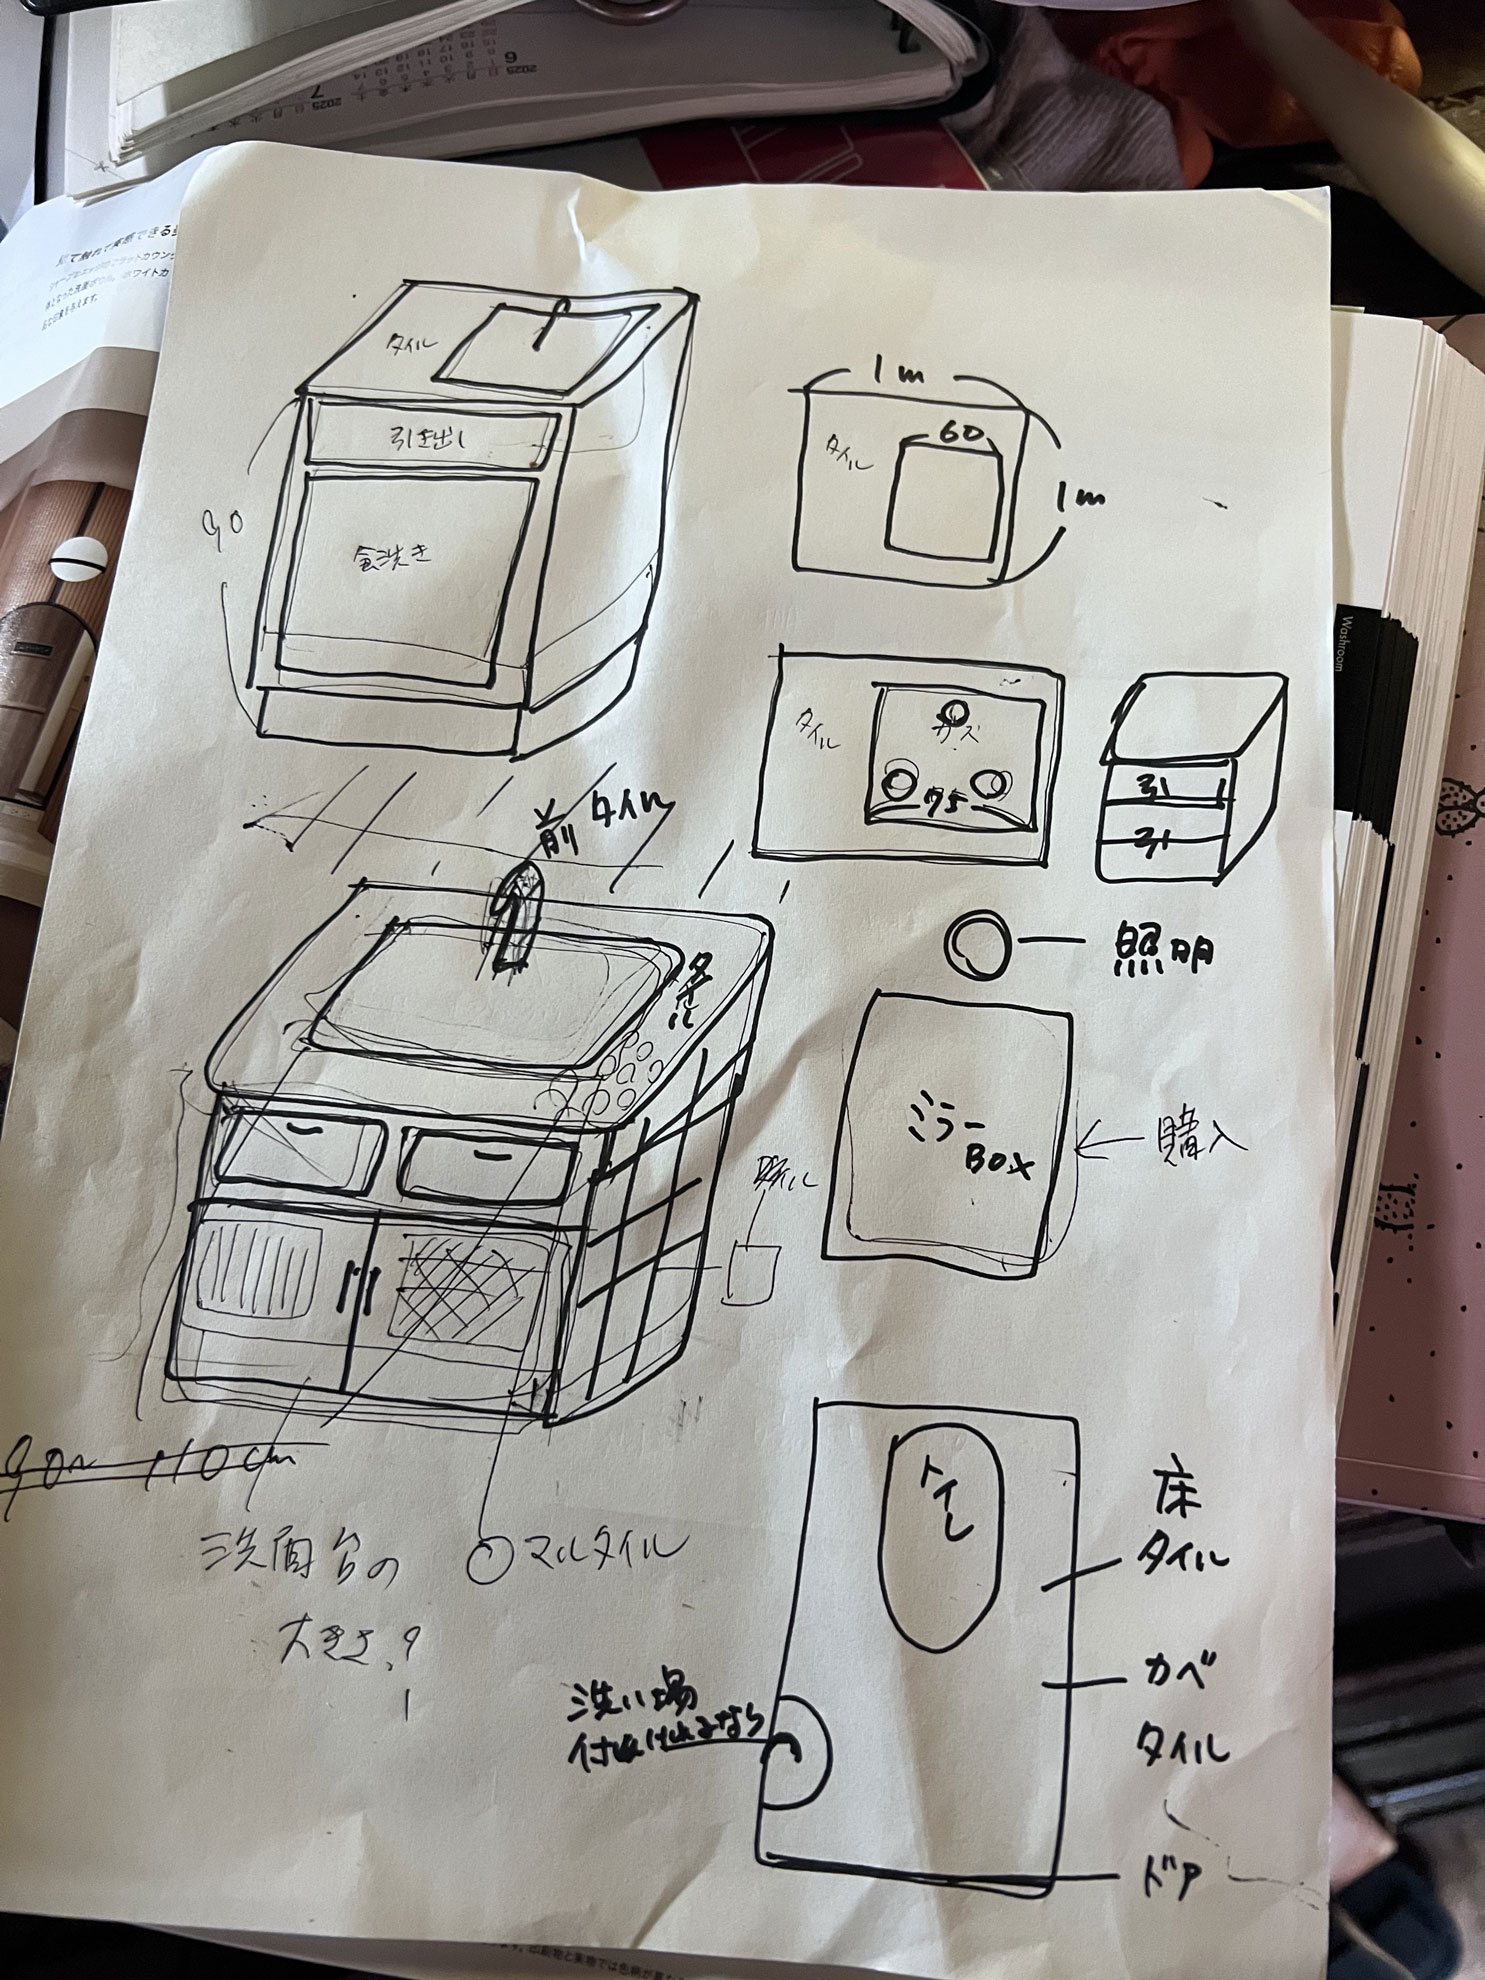 2025
6
2025
7
Washroom
タイル
引き出し
食洗き
90
1m
60
タイル
1m
タイル
ガス
75
引
引
前 タイル
タイル
照明
ミラー
BOX
購入
タイル
90~110cm
洗面台の
大きさ?
マルタイル
トイレ
床
タイル
カベ
タイル
洗い場
付け
なら
ドア